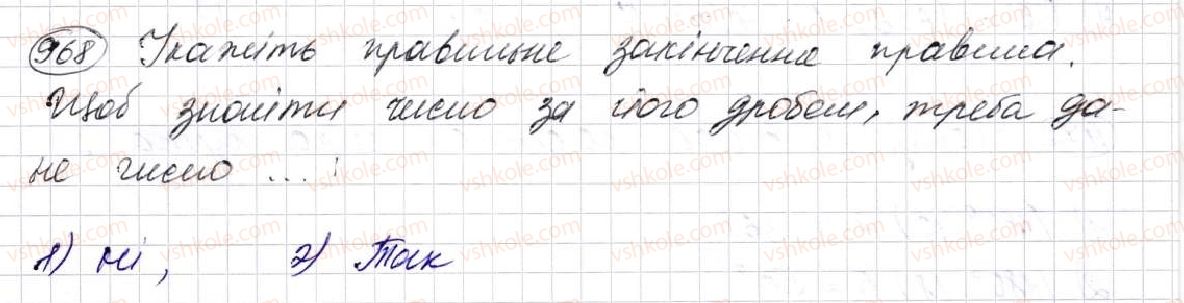 968 Укажіть правильне закінчення правила.
Щоб знайти число за його дробом, треба да-
не число ... :
1) Ні, 2) Так